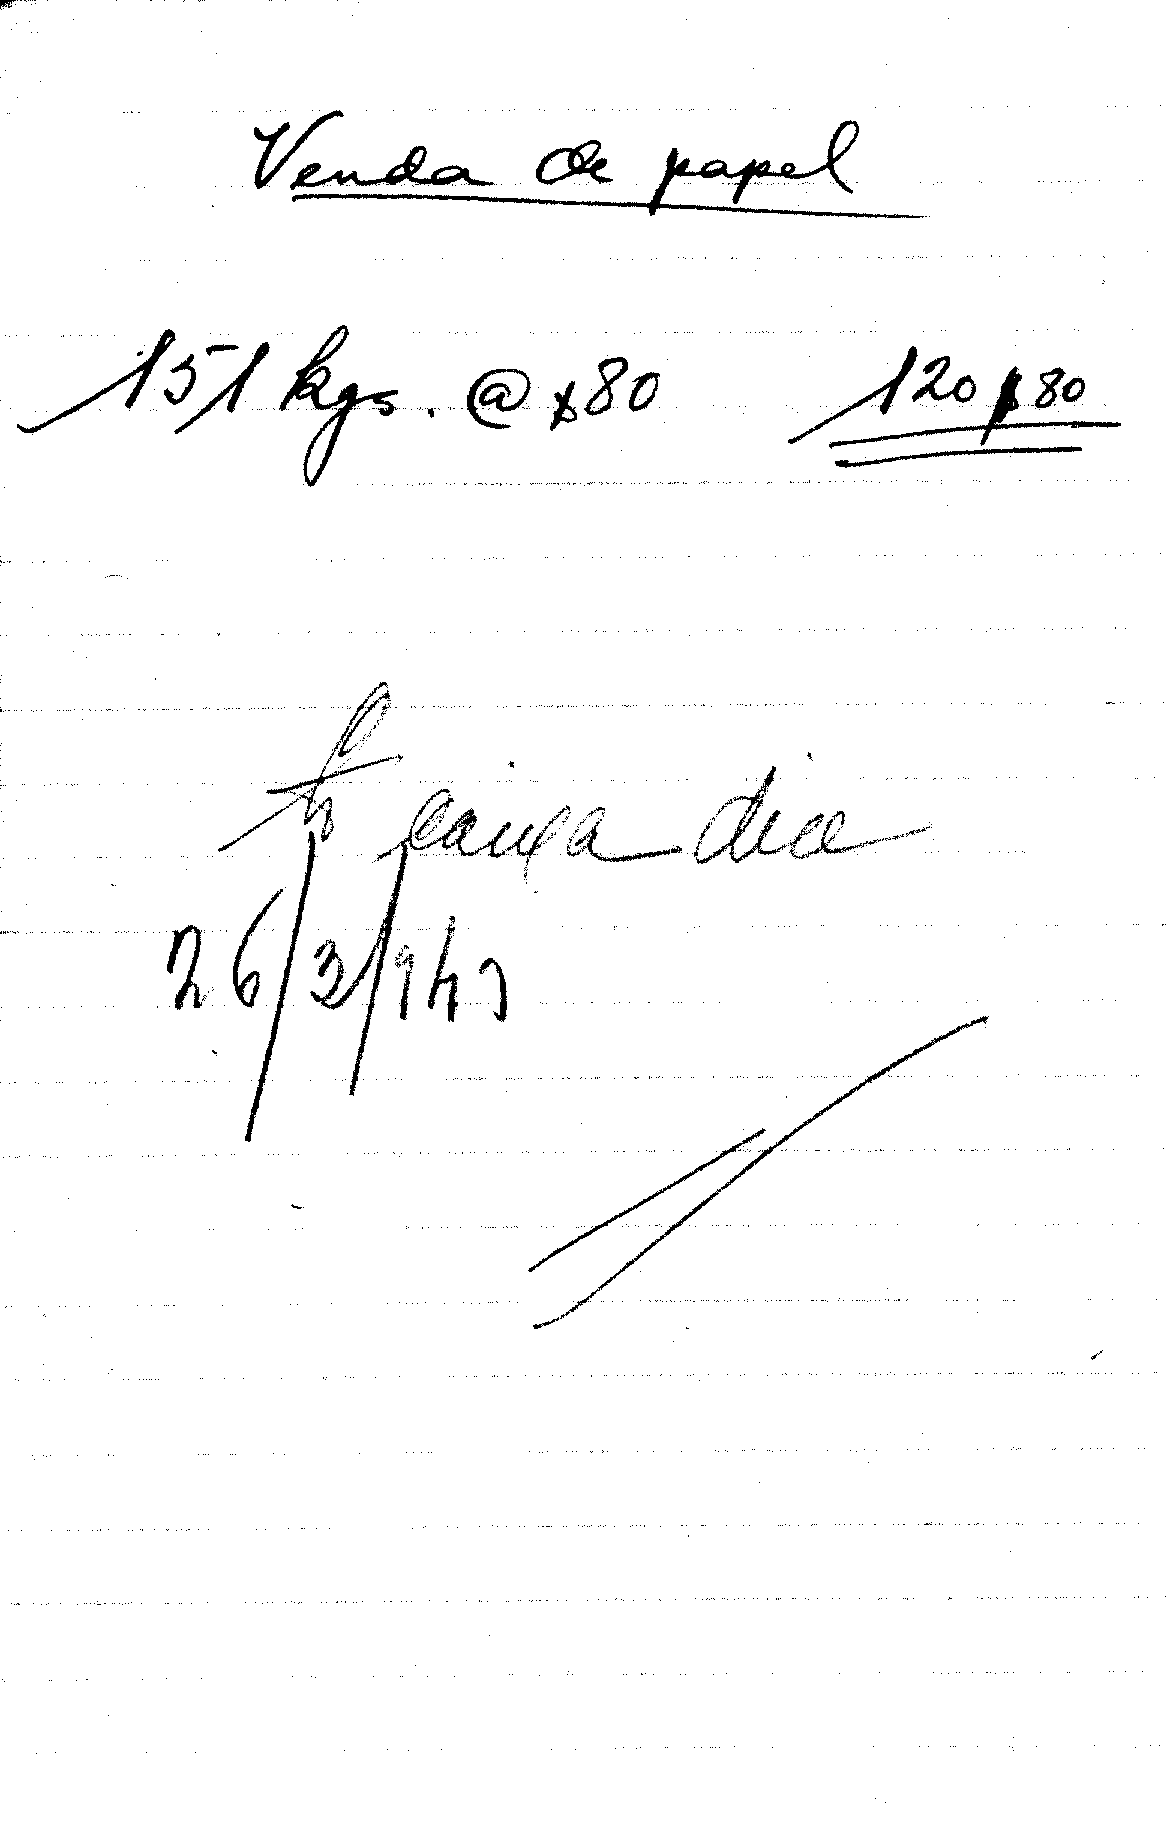 Venda de papel
151 kgs. @ $80 120$80
caixa
26/3/947